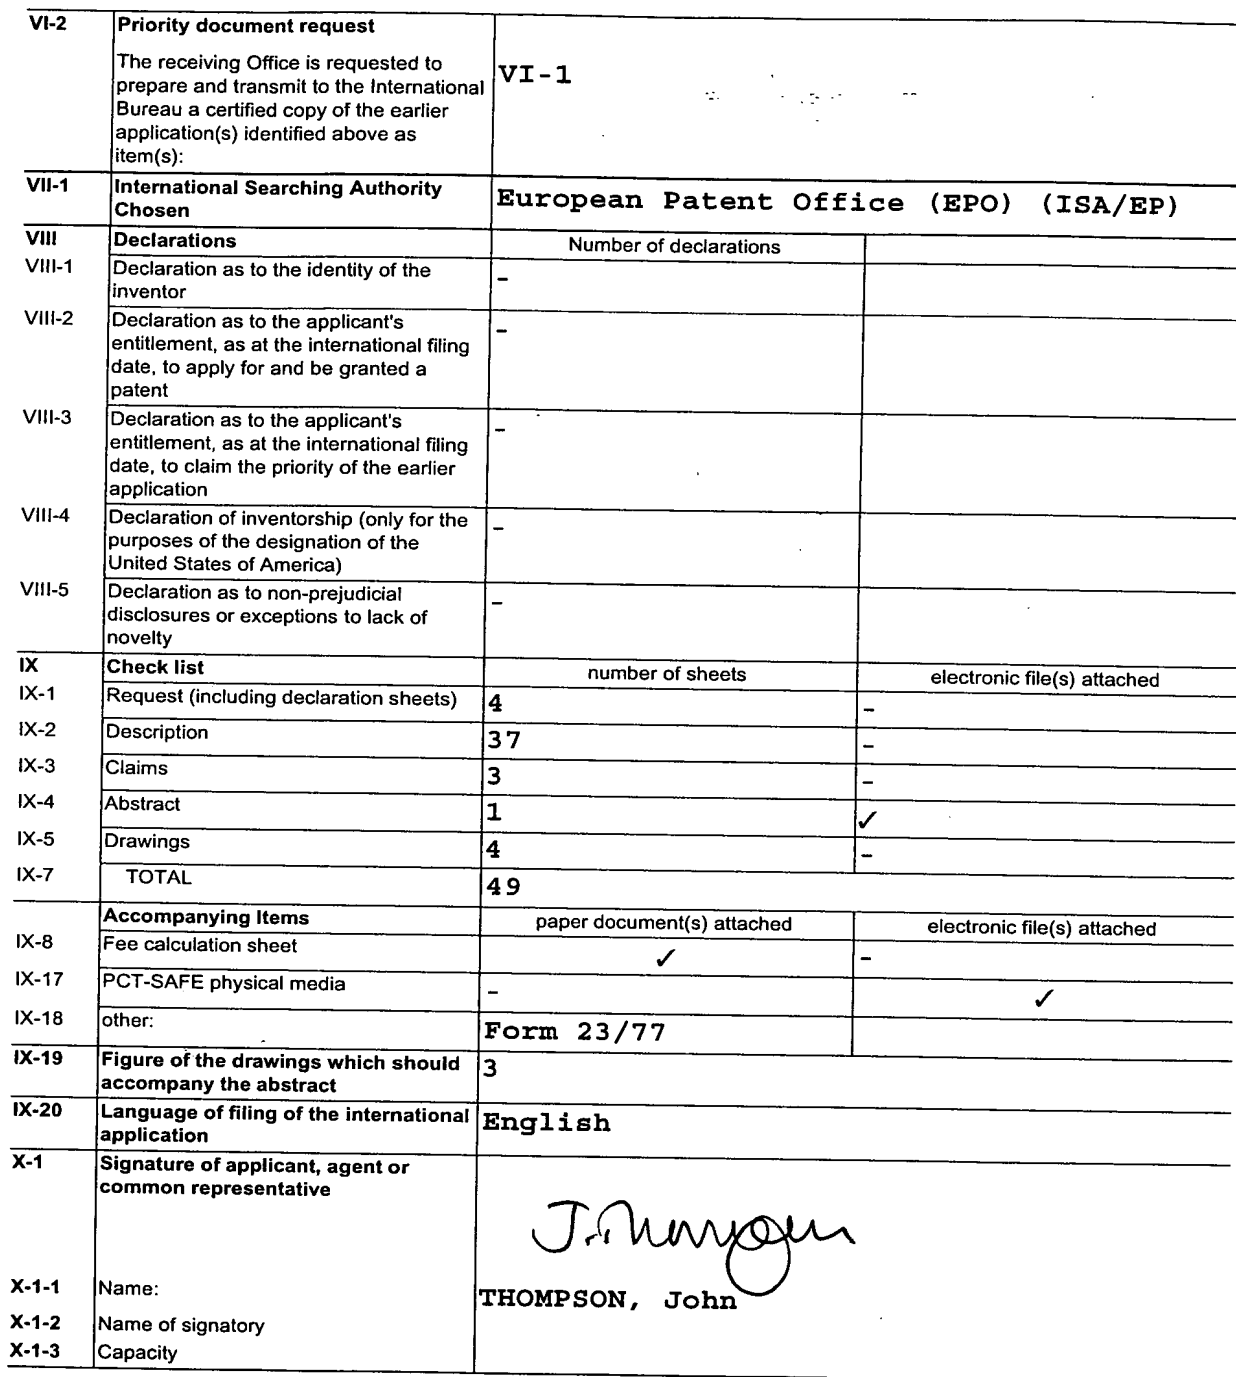 VI-2 Priority document request
The receiving Office is requested to
prepare and transmit to the International
Bureau a certified copy of the earlier
application(s) identified above as
item(s):
VI-1
VII-1 International Searching Authority
Chosen
European Patent Office (EPO) (ISA/EP)
VIII Declarations Number of declarations
VIII-1 Declaration as to the identity of the
inventor
-
VIII-2 Declaration as to the applicant's
entitlement, as at the international filing
date, to apply for and be granted a
patent
-
VIII-3 Declaration as to the applicant's
entitlement, as at the international filing
date, to claim the priority of the earlier
application
-
VIII-4 Declaration of inventorship (only for the
purposes of the designation of the
United States of America)
-
VIII-5 Declaration as to non-prejudicial
disclosures or exceptions to lack of
novelty
-
IX Check list number of sheets electronic file(s) attached
IX-1 Request (including declaration sheets) 4 -
IX-2 Description 37 -
IX-3 Claims 3 -
IX-4 Abstract 1 ✓
IX-5 Drawings 4 -
IX-7 TOTAL 49
Accompanying Items paper document(s) attached electronic file(s) attached
IX-8 Fee calculation sheet ✓ -
IX-17 PCT-SAFE physical media - ✓
IX-18 other: Form 23/77
IX-19 Figure of the drawings which should
accompany the abstract
3
IX-20 Language of filing of the international
application
English
X-1 Signature of applicant, agent or
common representative
X-1-1 Name: THOMPSON, John
X-1-2 Name of signatory
X-1-3 Capacity